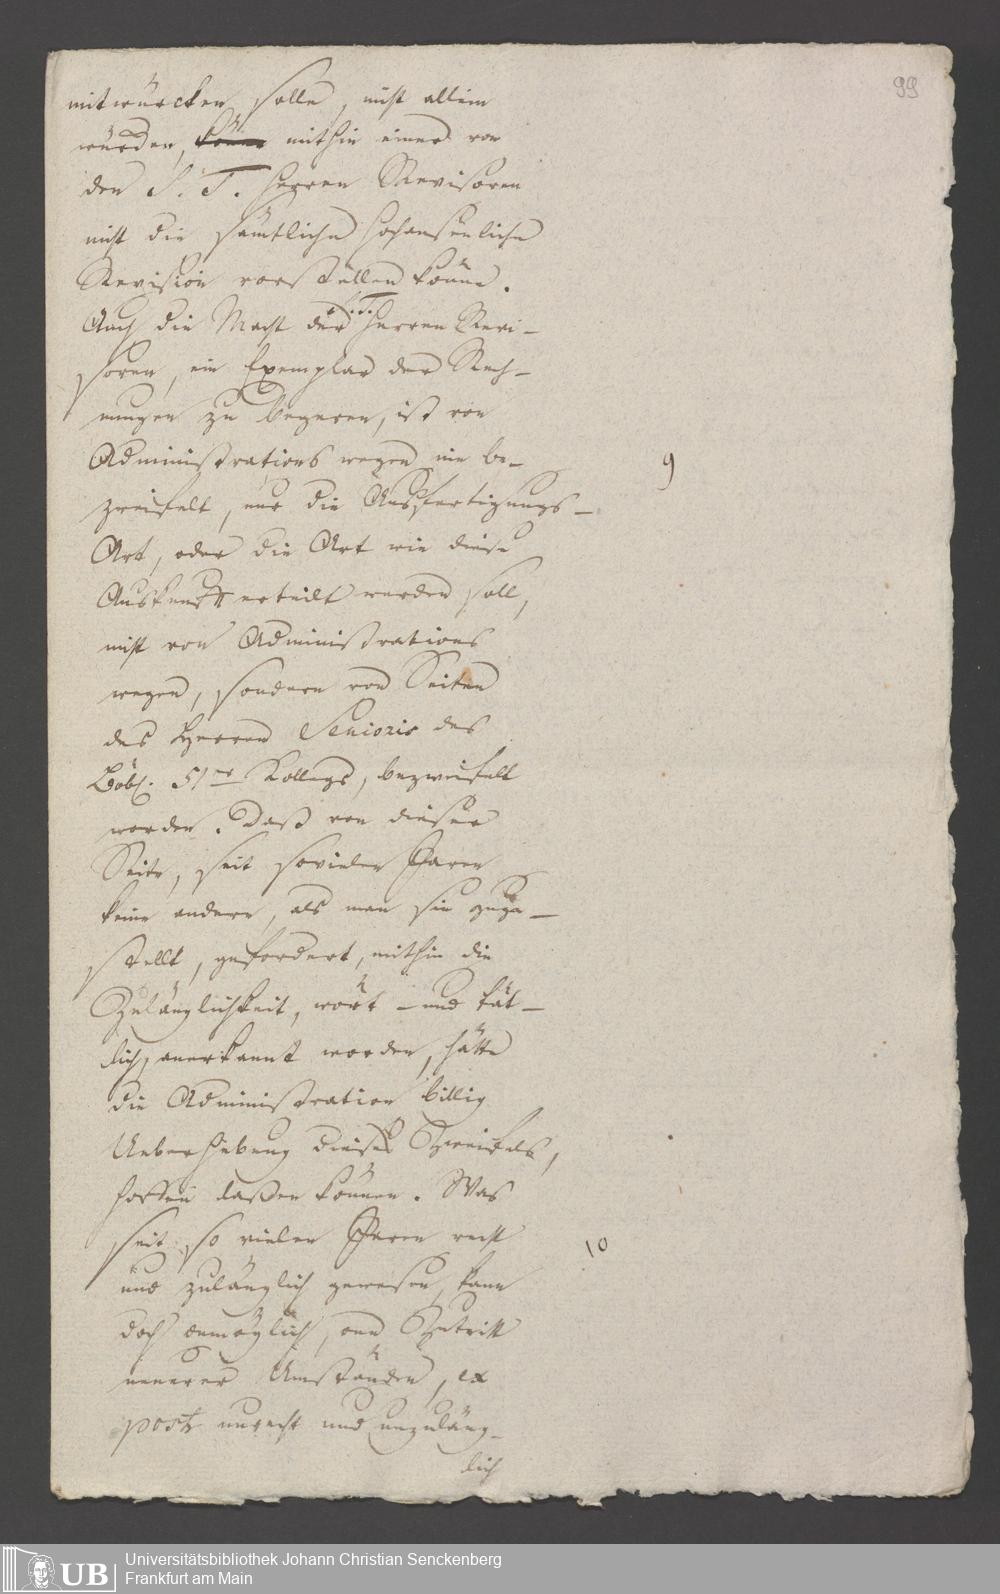 99
mitwürcken solle, nicht allein
würden, mithin einer von
den S. T. Herren Revisoren
nicht die sämtliche hochansenliche
Revision vorstellen könne.
Auch die Macht der S. T. Herren Revi-
soren, ein Exemplar der Rech-
nungen zu begeren, ist von
Administrations wegen nie be-
zweifelt, nur die Ausfertigungs-
Art, oder die Art wie diese
Auskunft erteilt werden soll,
nicht von Administrations
wegen, sondern von Seiten
des Herren Senioris des
Löbl. 51er Kollegs, bezweifelt
worden. Daß von dieser
Seite, seit sovielen Jaren
keine andere, als man sie zuge-
stellt, gefordert, mithin die
Zulänglichkeit, wört- und tät-
lich, anerkannt worden, hätte
die Administration billig
Ueberhebung dieses Zweifels,
hoffen daßen können. Was
seit so vielen Jaren recht
und zulänglich gewesen, kann
doch onmöglich, one Zutritt
neuerer Umständen, ex
post unrecht und unzuläng-
lich
9
10
UB
Universitätsbibliothek Johann Christian Senckenberg
Frankfurt am Main